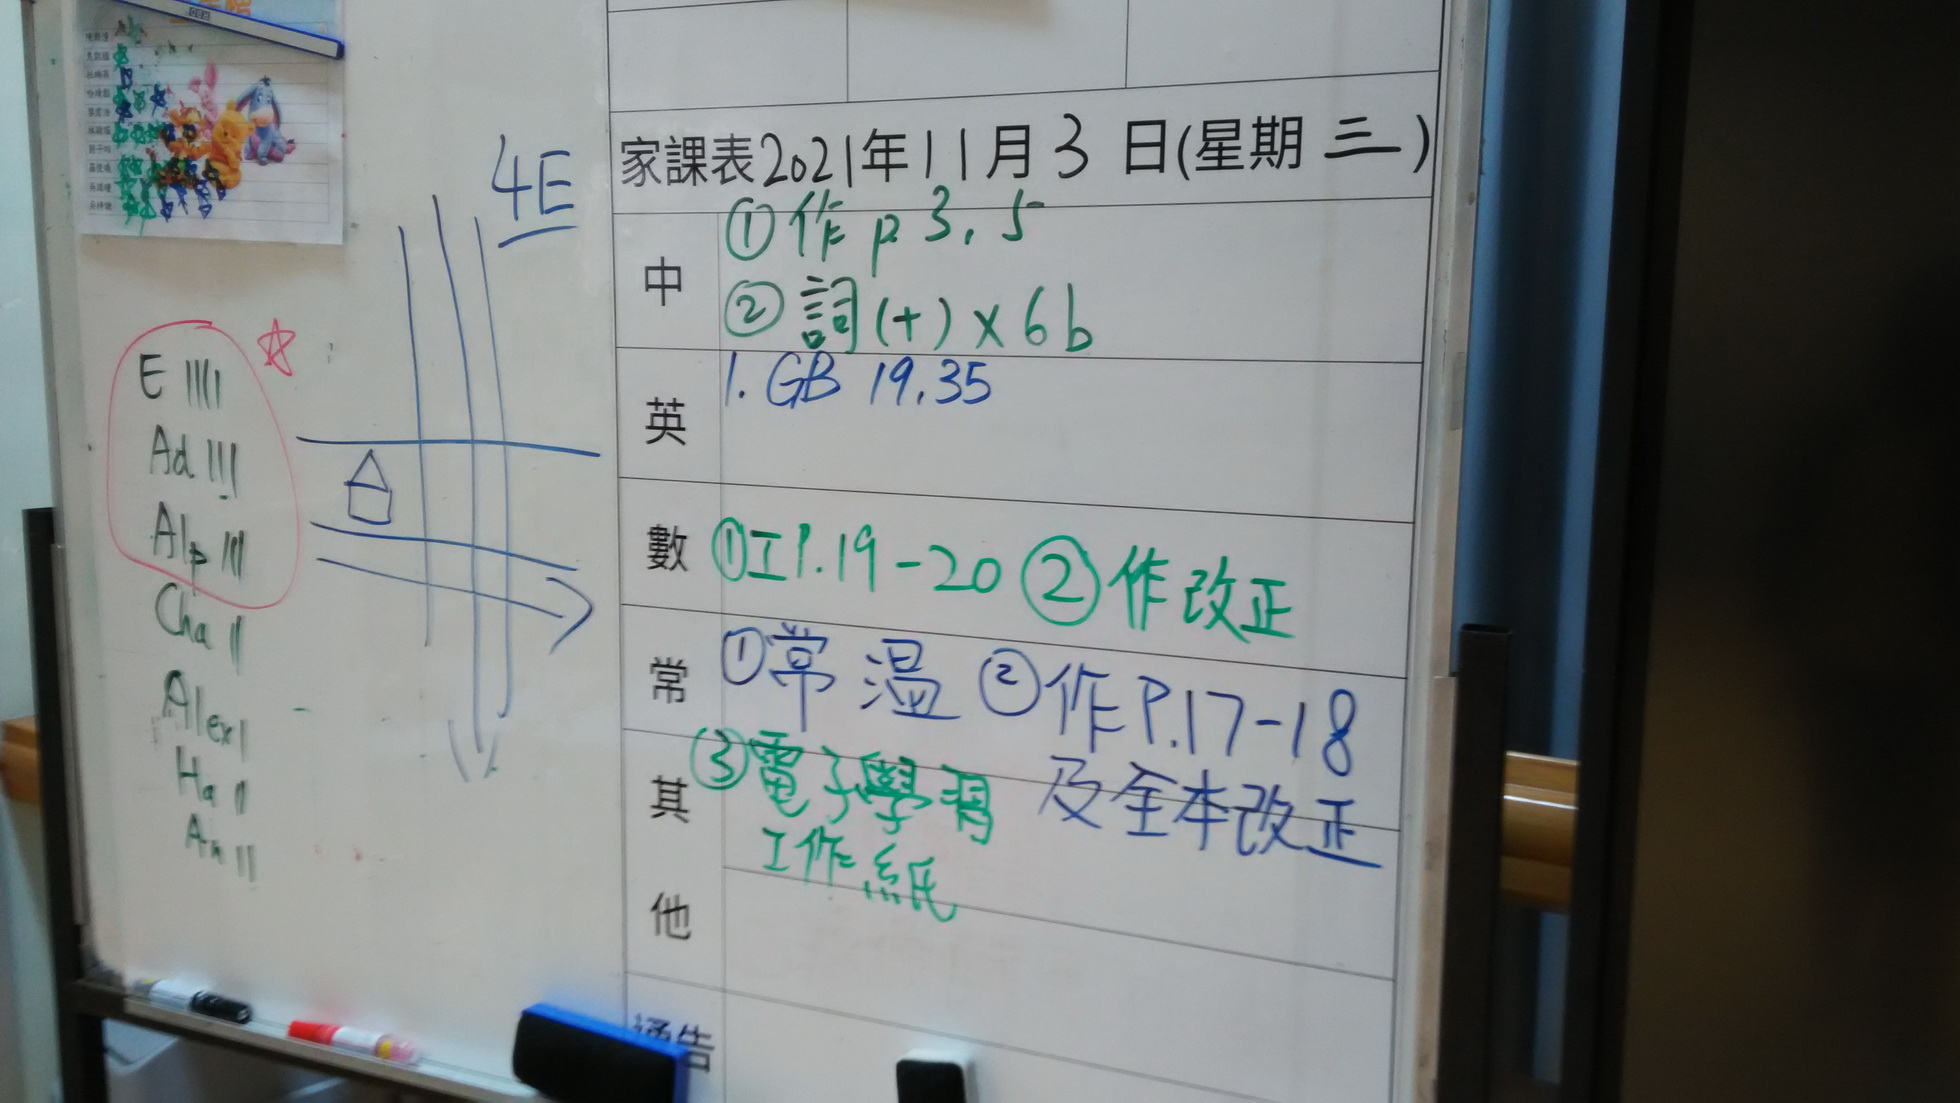 4E
E
Ad
Alp
Cha
Alex
Ha
An
家課表2021年11月3日(星期三)
中
①作p.3,5
②詞(十)×6b
英
1. GB 19.35
數
①工P.19-20 ②作改正
常
①常溫 ②作P.17-18
及全本改正
③電子學習
工作紙
其
他
通告